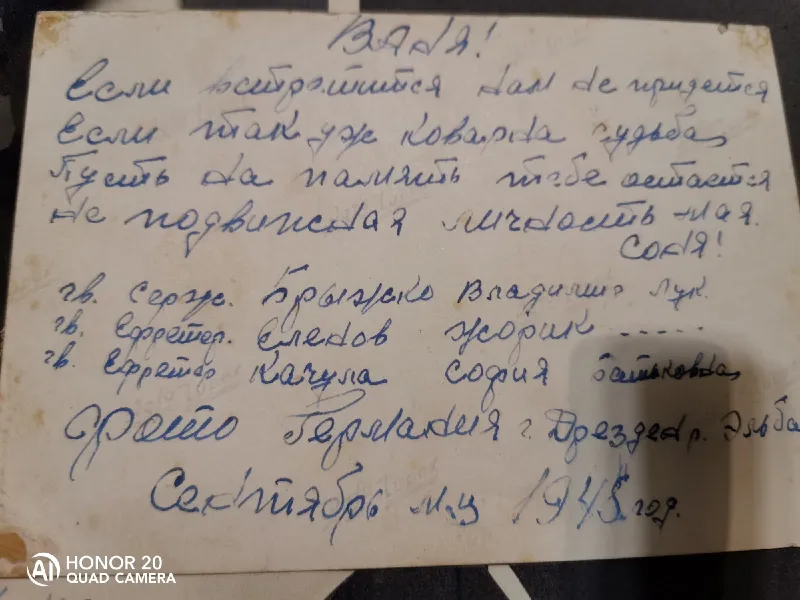 Ваня!
Если встретится нам не придется
Если так уж коварна судьба,
Пусть на память тебе остается
не подвижная личность мая.
Соня!
гв. Серж. Брыжко Владимир Лук.
гв. Ефрейтор. Еленов Жорик ......
гв. Ефрейтор Качула София батьковна,
фото Германия г. Дрезден р. Эльба
Сентябрь м-ц 1945 год.
HONOR 20
QUAD CAMERA